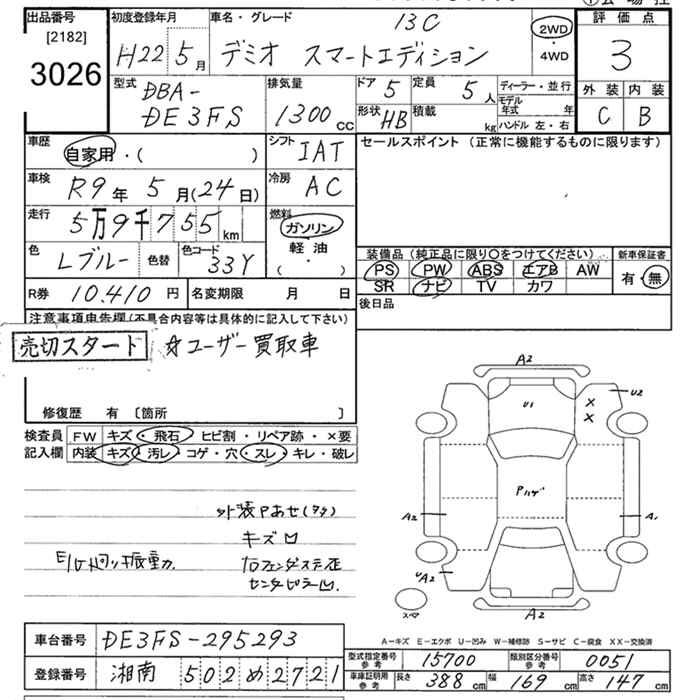 出品番号
[2182]
3026
初度登録年月
H22 5月
車名・グレード
13C
デミオ スマートエディション
2WD
・
4WD
評価点
3
外装 内装
C B
型式
DBA-
DE3FS
排気量
1300 CC
ドア
5
定員
5人
形状
HB
積載
kg
ディーラー・並行
モデル年式 年
ハンドル 左・右
車歴
自家用・( )
シフト
IAT
セールスポイント (正常に機能するものに限ります)
車検
R9年 5月(24日)
冷房
AC
走行
5万9千755 km
燃料
ガソリン
軽油
( ・ )
色
Lブルー
色替
色コード
33Y
装備品 (純正品に限り〇をつけてください)
新車保証書
PS PW ABS エアB AW
SR ナビ TV カワ
有・無
R券 10.410 円
名変期限 月 日
後日品
注意事項申告欄(不具合内容等は具体的に記入して下さい)
売切スタート
☆ユーザー買取車
修復歴 有 〔箇所 〕
検査員
記入欄
FW キズ・飛石・ヒビ割・リペア跡・×要
内装 キズ・汚レ・コゲ・穴・スレ・キレ・破レ
外装Pあせ(タタ)
キズ凹
E/G回り振動
右フェンダステー歪
センターピラー凹.
A2
U1
U2
×
×
Pハゲ
A2
A1
UA2
スペア
A2
A－キズ E－エクボ U－凹み W－補修跡 S－サビ C－腐食 XX－交換済
車台番号
DE3FS-295293
登録番号
湘南 502 め 2721
型式指定番号
参考
15700
類別区分番号
参考
0051
車庫証明用
参考
長さ 388 cm
幅 169 cm
高さ 147 cm